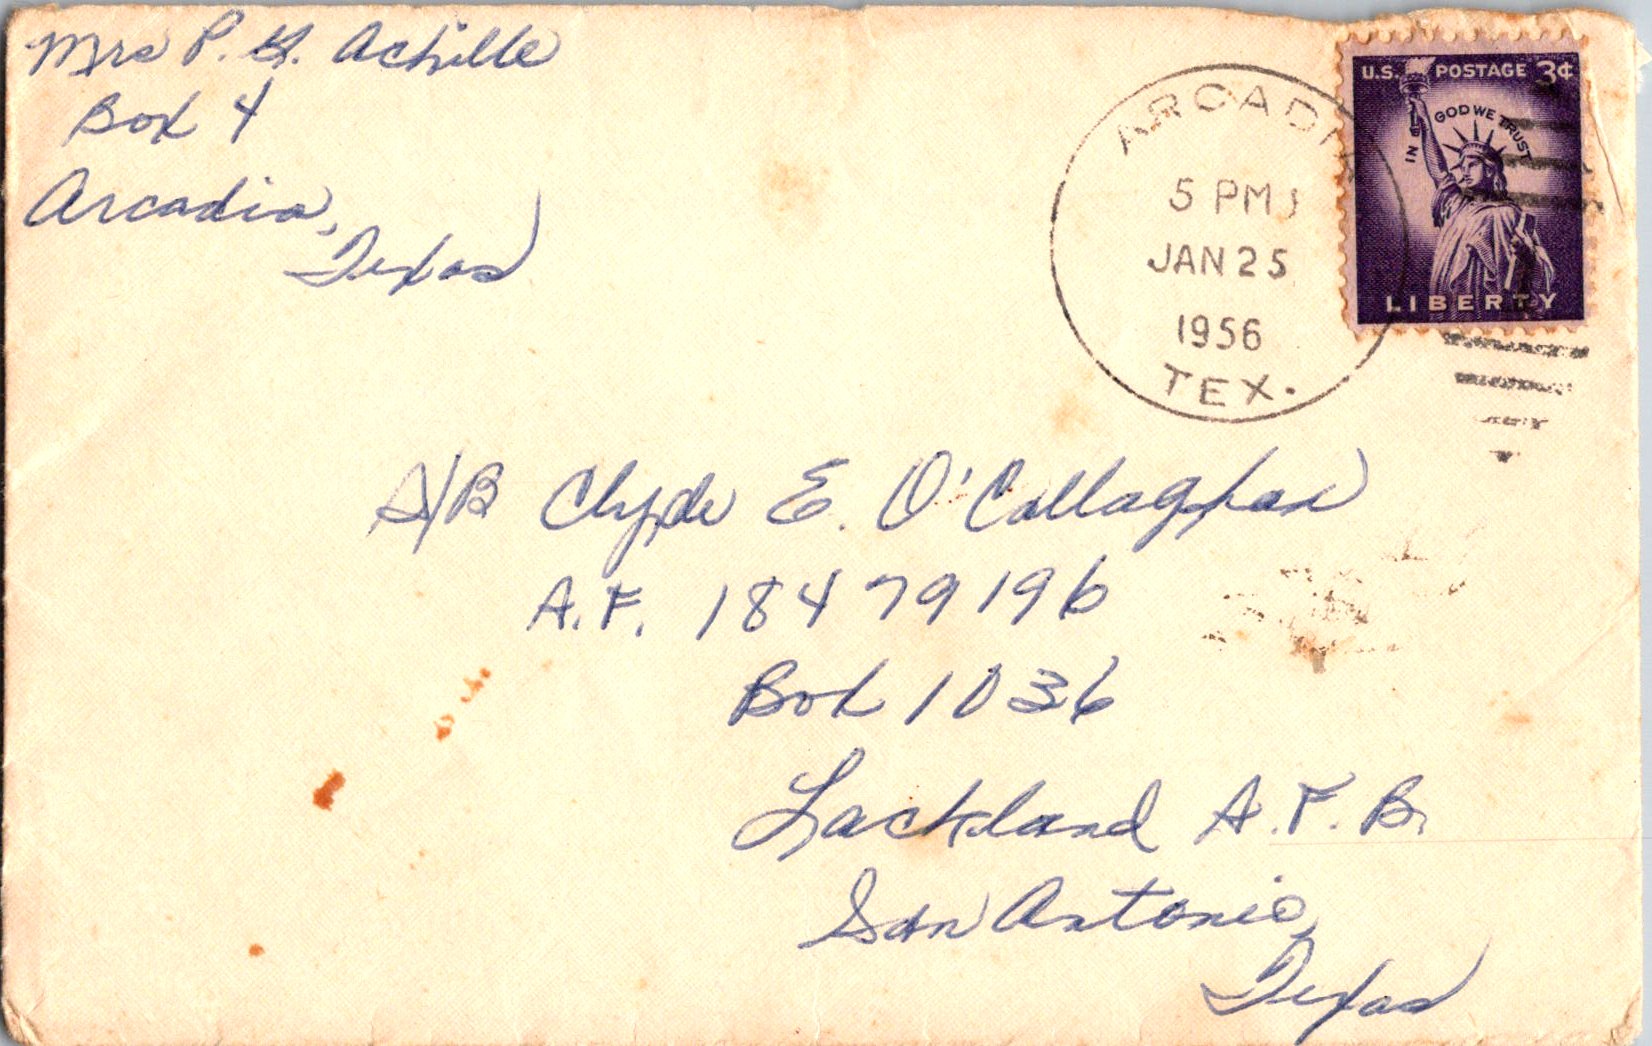 Mrs P. H. Achille
Box 4
Arcadia,
Texas
ARCADIA
5 PM
JAN 25
1956
TEX.
U.S. POSTAGE 3¢
IN GOD WE TRUST
LIBERTY
A/B Clyde E. O'Callaghan
A.F. 18479196
Box 1036
Lackland A.F.B.
San Antonio,
Texas